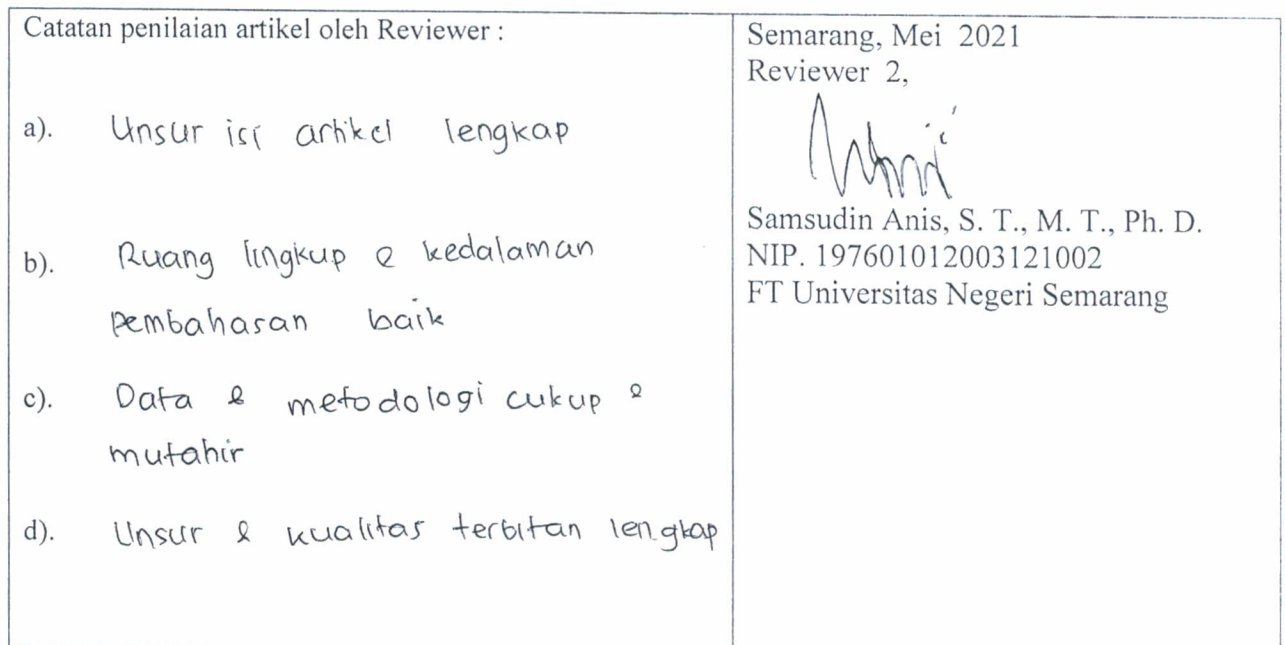 Catatan penilaian artikel oleh Reviewer :
a). Unsur isi artikel lengkap
b). Ruang lingkup & kedalaman
pembahasan baik
c). Data & metodologi cukup &
mutahir
d). Unsur & kualitas terbitan lengkap
Semarang, Mei 2021
Reviewer 2,
Samsudin Anis, S. T., M. T., Ph. D.
NIP. 197601012003121002
FT Universitas Negeri Semarang